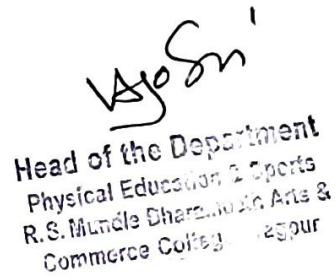 Head of the Department
Physical Education & Sports
R. S. Mundle Dharampeth Arts &
Commerce College Nagpur